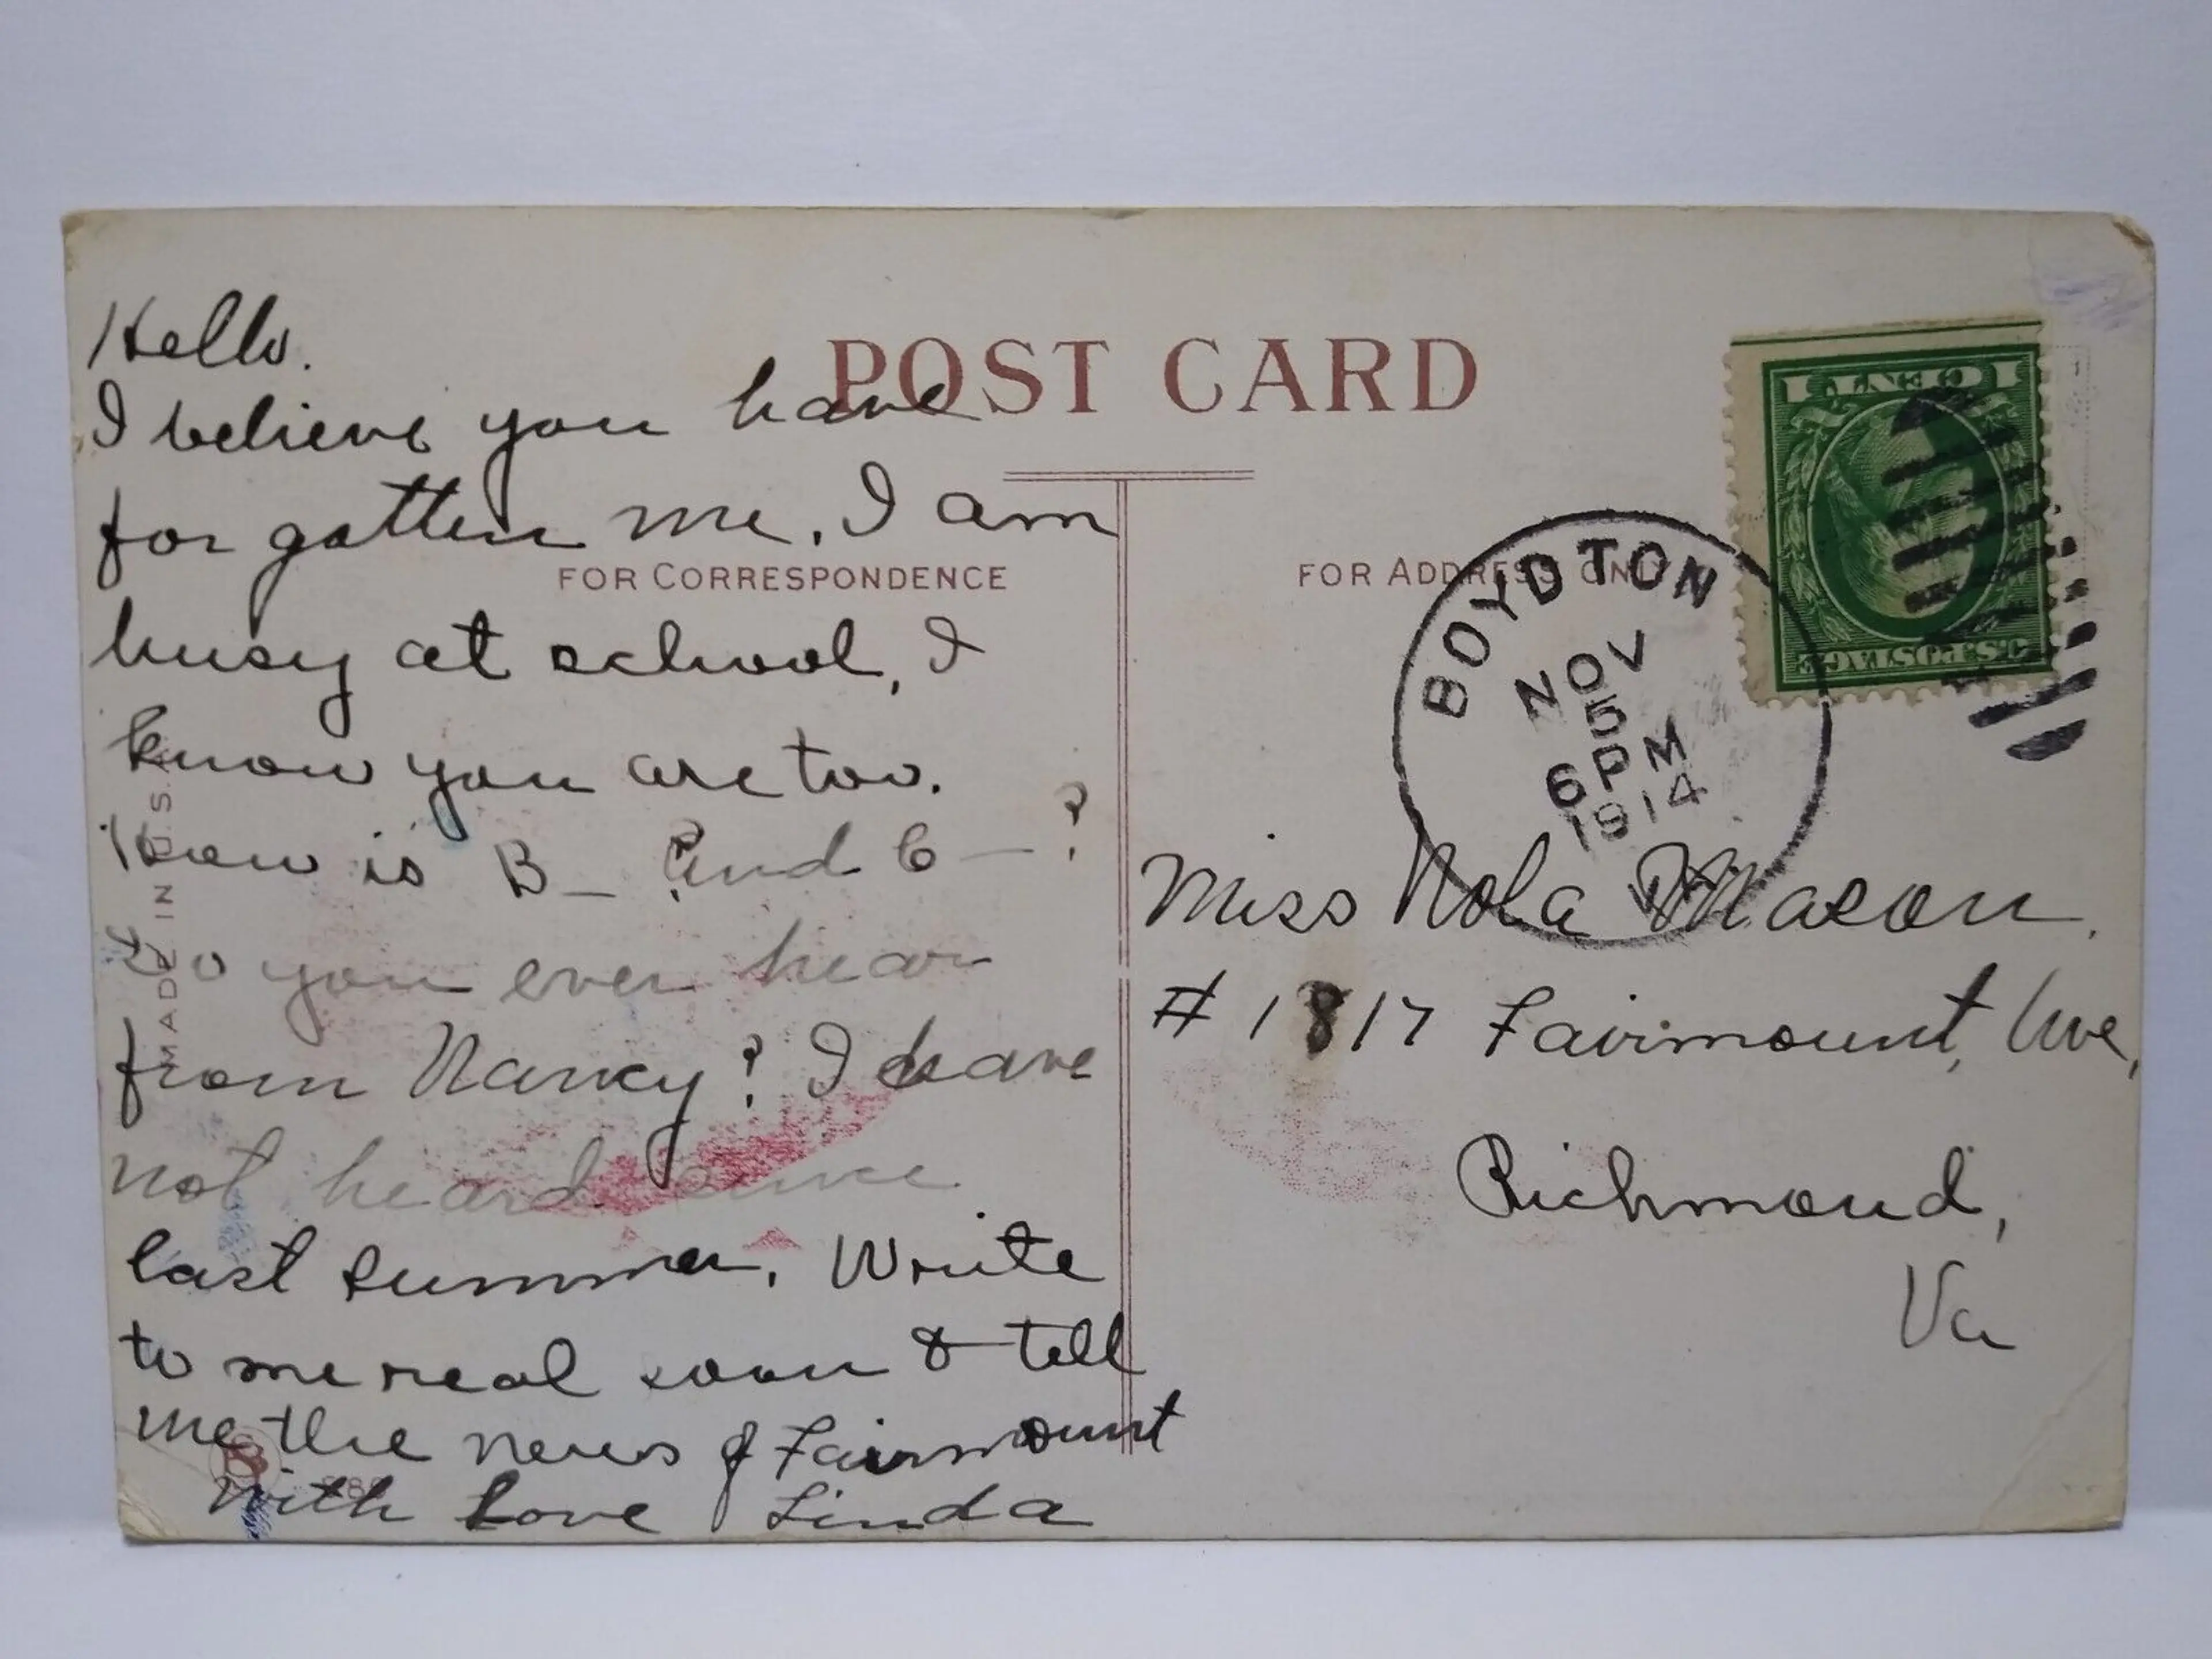 POST CARD
FOR CORRESPONDENCE
FOR ADDRESS ONLY
MADE IN U.S.A.
Hello.
I believe you have
for gotten me. I am
busy at school, I
know you are too.
How is B— ? And C — ?
Do you ever hear
from Nancy? I have
not heard since
last summer. Write
to me real soon & tell
me the news of Fairmount
With Love Linda
1 CENT 1
U.S. POSTAGE
BOYDTON
NOV
5
6 PM
1914
VA.
Miss Nola Mason.
# 1817 Fairmount, Ave,
Richmond,
Va
B